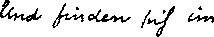 und finden sich im